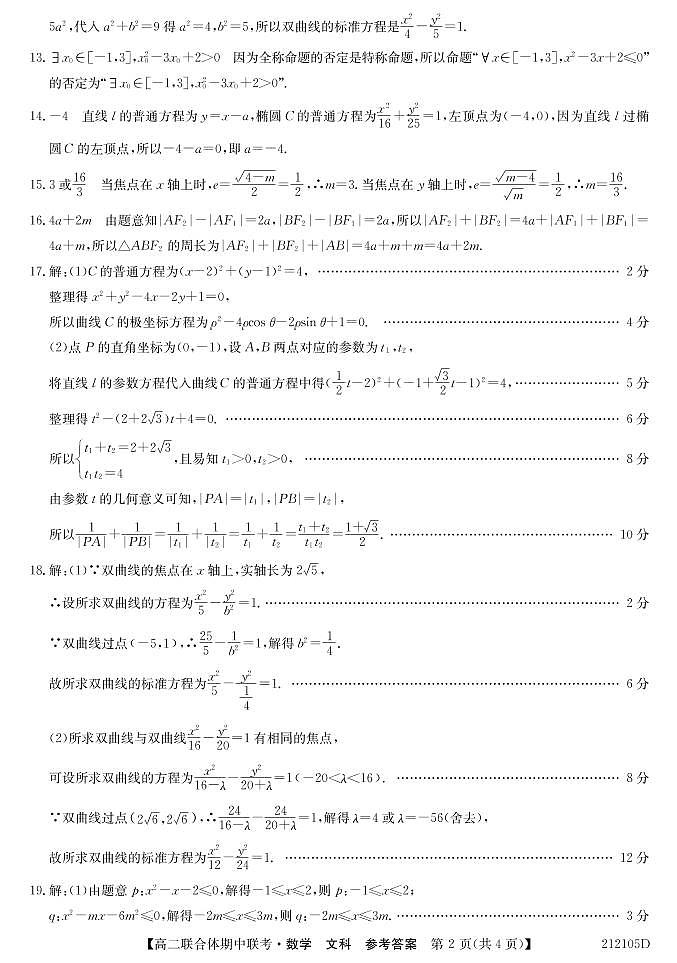 5a²,代入 a²+b²=9 得 a²=4,b²=5,所以双曲线的标准方程是x²/4-y²/5=1.
13.∃x₀∈[-1,3],x₀²-3x₀+2>0 因为全称命题的否定是特称命题,所以命题“∀x∈[-1,3],x²-3x+2⩽0”
的否定为“∃x₀∈[-1,3],x₀²-3x₀+2>0”.
14.-4 直线 l 的普通方程为 y=x-a,椭圆 C 的普通方程为x²/16+y²/25=1,左顶点为(-4,0),因为直线 l 过椭
圆 C 的左顶点,所以-4-a=0,即 a=-4.
15.3 或16/3 当焦点在 x 轴上时,e=√(4-m)/2=1/2,∴m=3.当焦点在 y 轴上时,e=√(m-4)/√m=1/2,∴m=16/3.
16.4a+2m 由题意知|AF₂|-|AF₁|=2a,|BF₂|-|BF₁|=2a,所以|AF₂|+|BF₂|=4a+|AF₁|+|BF₁|=
4a+m,所以△ABF₂ 的周长为|AF₂|+|BF₂|+|AB|=4a+m+m=4a+2m.
17.解:(1)C 的普通方程为(x-2)²+(y-1)²=4, …… 2 分
整理得 x²+y²-4x-2y+1=0,
所以曲线 C 的极坐标方程为 ρ²-4ρcos θ-2ρsin θ+1=0. …… 4 分
(2)点 P 的直角坐标为(0,-1),设 A,B 两点对应的参数为 t₁,t₂,
将直线 l 的参数方程代入曲线 C 的普通方程中得(1/2t-2)²+(-1+√3/2t-1)²=4, …… 5 分
整理得 t²-(2+2√3)t+4=0. …… 6 分
所以{t₁+t₂=2+2√3 t₁t₂=4,且易知 t₁>0,t₂>0, …… 8 分
由参数 t 的几何意义可知,|PA|=|t₁|,|PB|=|t₂|,
所以1/|PA|+1/|PB|=1/|t₁|+1/|t₂|=1/t₁+1/t₂=(t₁+t₂)/t₁t₂=(1+√3)/2. …… 10 分
18.解:(1)∵双曲线的焦点在 x 轴上,实轴长为 2√5,
∴设所求双曲线的方程为x²/5-y²/b²=1. …… 2 分
∵双曲线过点(-5,1),∴25/5-1/b²=1,解得 b²=1/4.
故所求双曲线的标准方程为x²/5-y²/(1/4)=1. …… 6 分
(2)所求双曲线与双曲线x²/16-y²/20=1 有相同的焦点,
可设所求双曲线的方程为x²/(16-λ)-y²/(20+λ)=1(-20<λ<16). …… 8 分
∵双曲线过点(2√6,2√6),∴24/(16-λ)-24/(20+λ)=1,解得 λ=4 或 λ=-56(舍去),
故所求双曲线的标准方程为x²/12-y²/24=1. …… 12 分
19.解:(1)由题意 p:x²-x-2⩽0,解得-1⩽x⩽2,则 p:-1⩽x⩽2;
q:x²-mx-6m²⩽0,解得-2m⩽x⩽3m,则 q:-2m⩽x⩽3m. …… 3 分
【高二联合体期中联考·数学 文科 参考答案 第 2 页(共 4 页)】 212105D